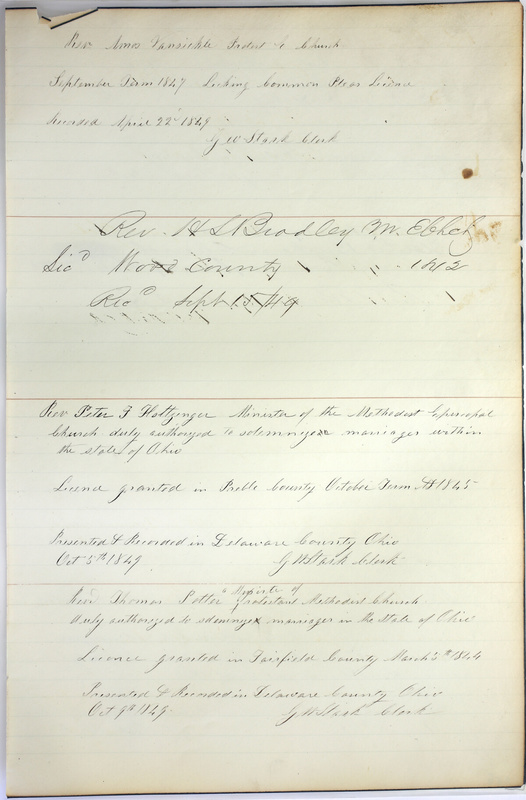 Rev Amos Vansickle Protest E Church
September Term 1847 Licking Common Pleas Licence
Recorded April 22d 1849
G W Stark Clerk
Rev. H L Bradley M. E Chch
Lic'd Wood County 1842
Rec'd Sept 15/49
Rev Peter F Holtzinger Minister of the Methodest Episcopal
Church duly authorized to solemnize marriages within
the state of Ohio
Licence granted in Preble County October Term AD 1845
Presented & Recorded in Delaware County Ohio
Oct 5th 1849 G W Stark Clerk
a Ministe of
Rev Thomas Potter Protestant Methodest Church
duly authorized to solemnize marriages in the State of Ohio
Licence granted in Fairfield County March 5th 1844
Presented & Recorded in Delaware County Ohio
Oct 9th 1849 G W Stark Clerk